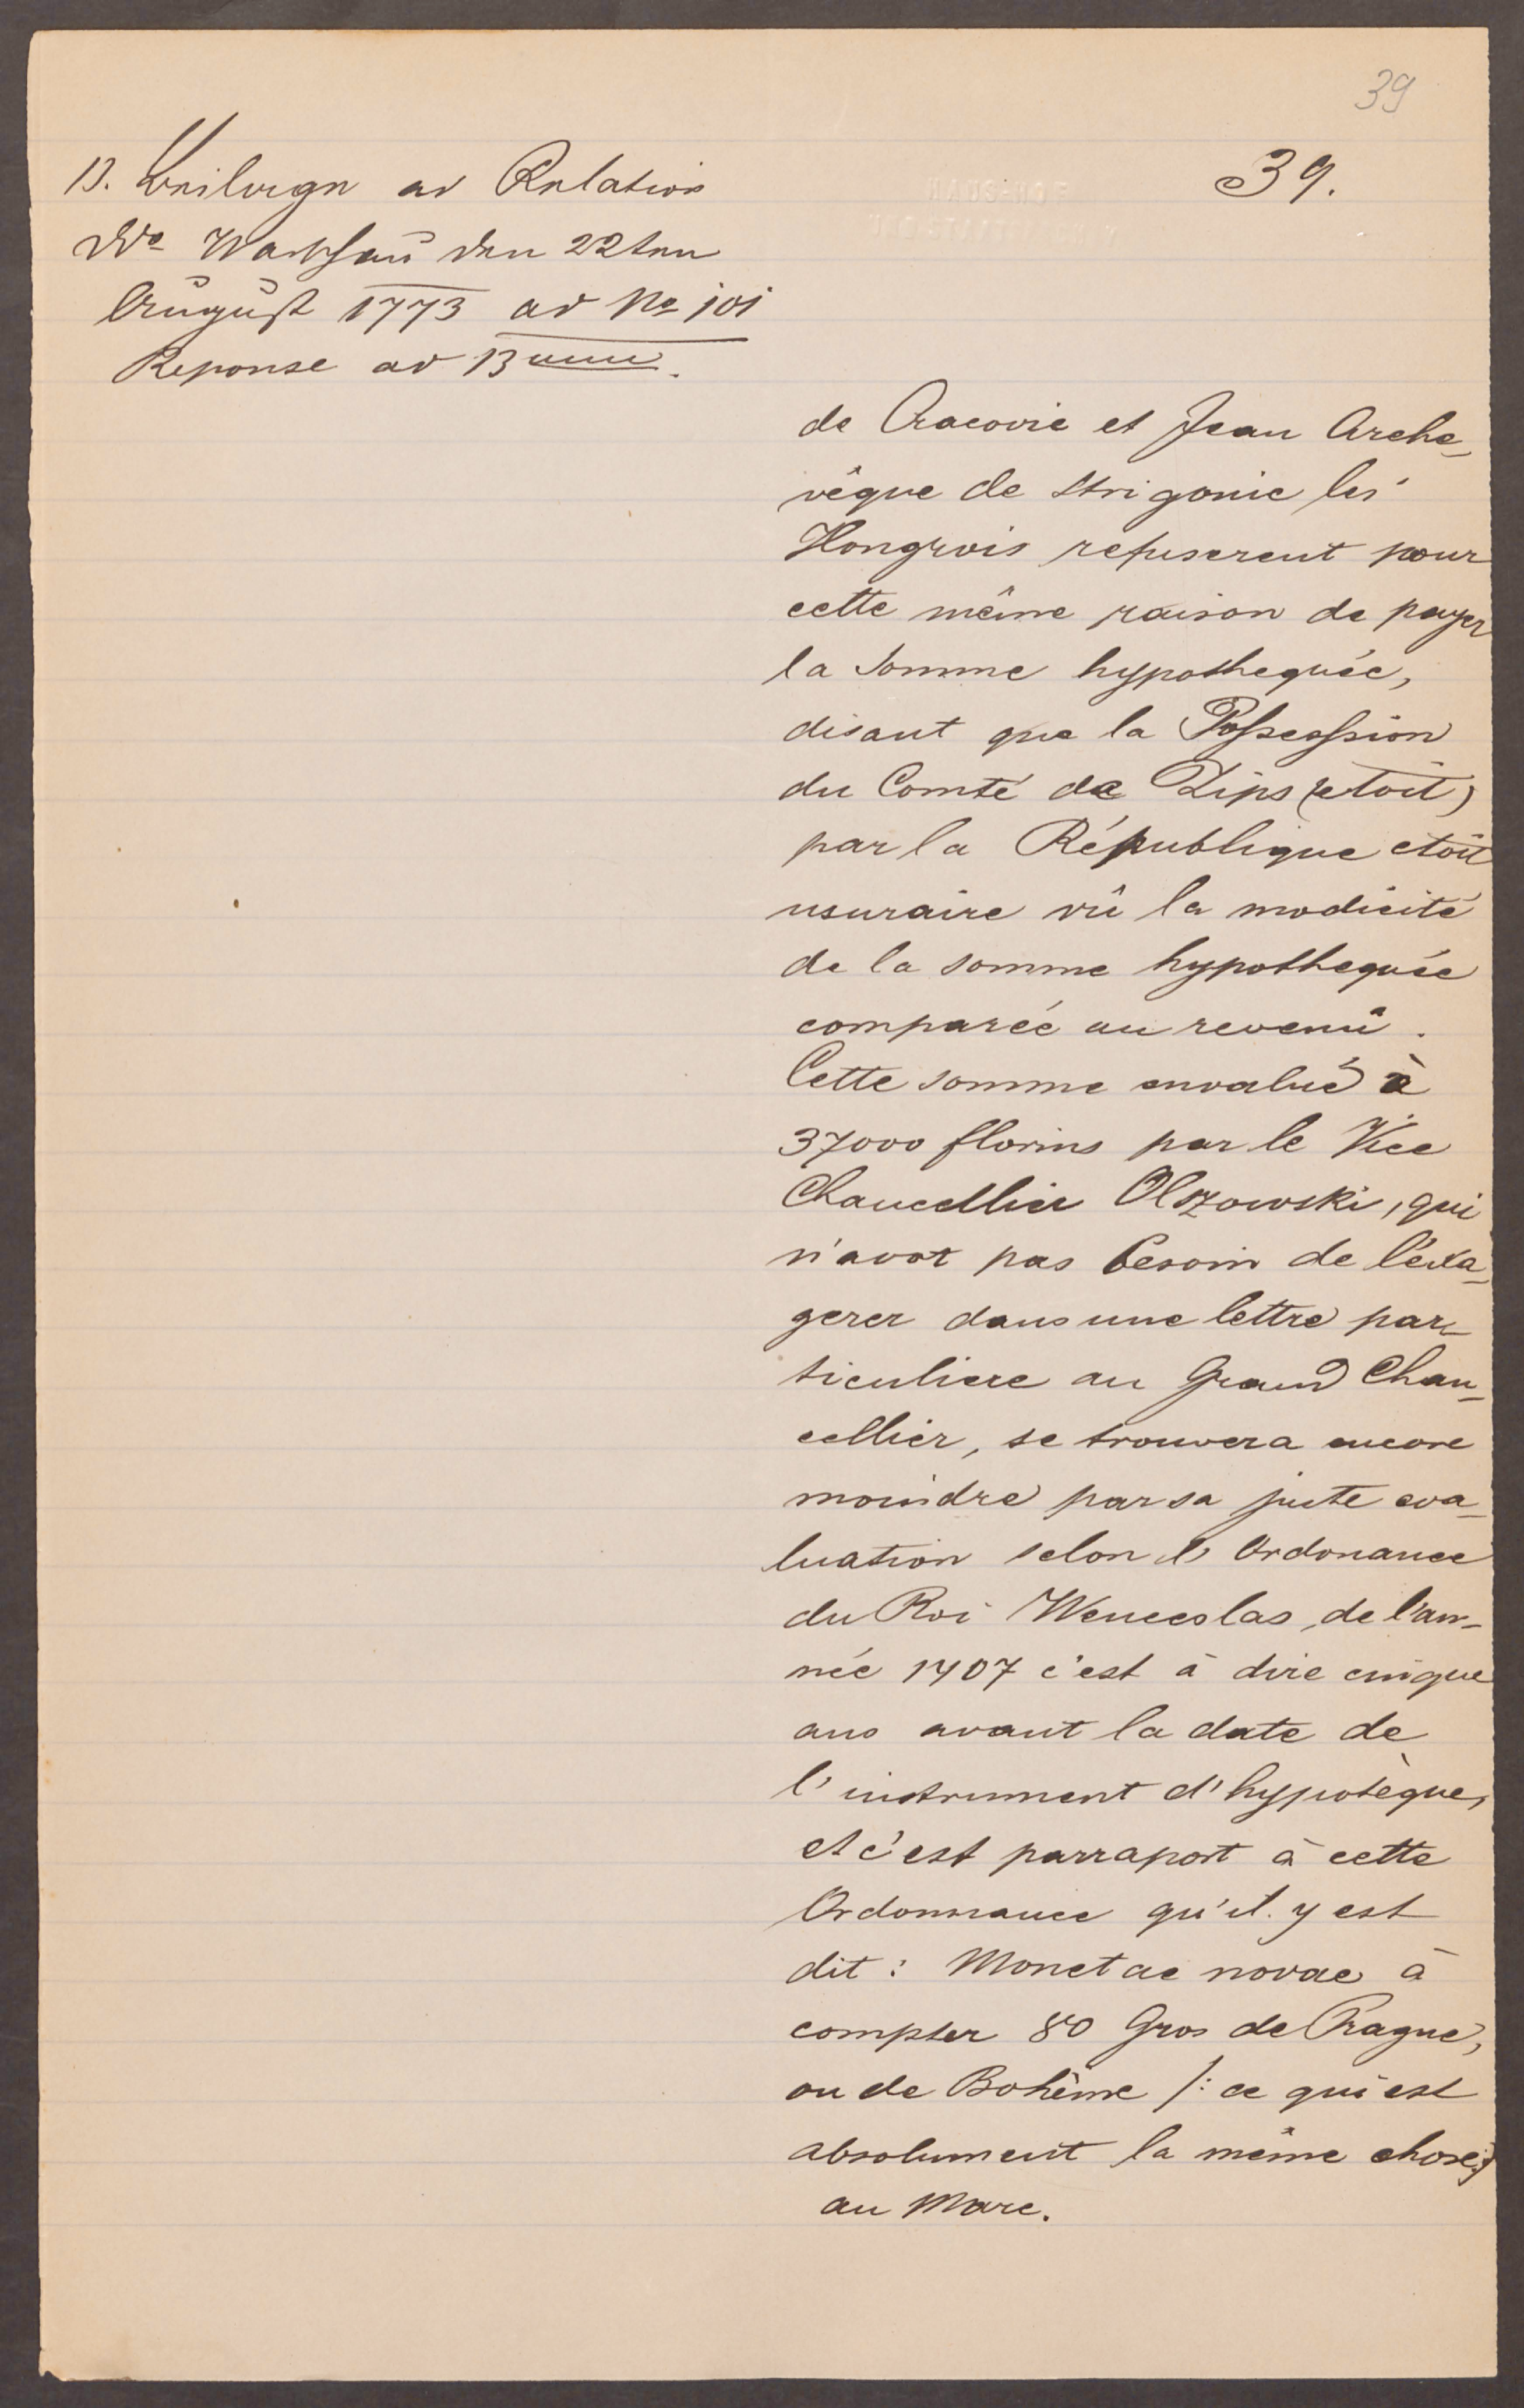 39
39.
13. Beilage ad Relation
Do Warschau den 22ten
August 1773 ad No 101
Reponse ad 13um.
de Cracovie et Jean Arche-
vêque de Strigonie les
Hongrois refuserent pour
cette même raison de payer
la Somme hypothequée,
disant que la Possession
du Comté de Zips (etoit)
par la République etoit
usuraire vû la modicité
de la somme hypothequée
comparée au revenû.
Cette somme envalué à
37000 florins par le Vice
Chancellier Olszowski, qui
n'avot pas besoin de l'éxa-
gerer dans une lettre par-
ticuliere au Grand Chan-
cellier, se trouvera encore
moindre par sa juste eva-
luation selon l'Ordonance
du Roi Wenceslas, de l'an-
née 1407 c'est à dire cinque
ans avant la date de
l'instrument d'hypotèque,
et c'est parraport à cette
Ordonnance qu'il y est
dit: Monetae novae à
compter 80 Gros de Prague,
ou de Bohême /: ce qui est
absolument la même chose:/
au Marc.